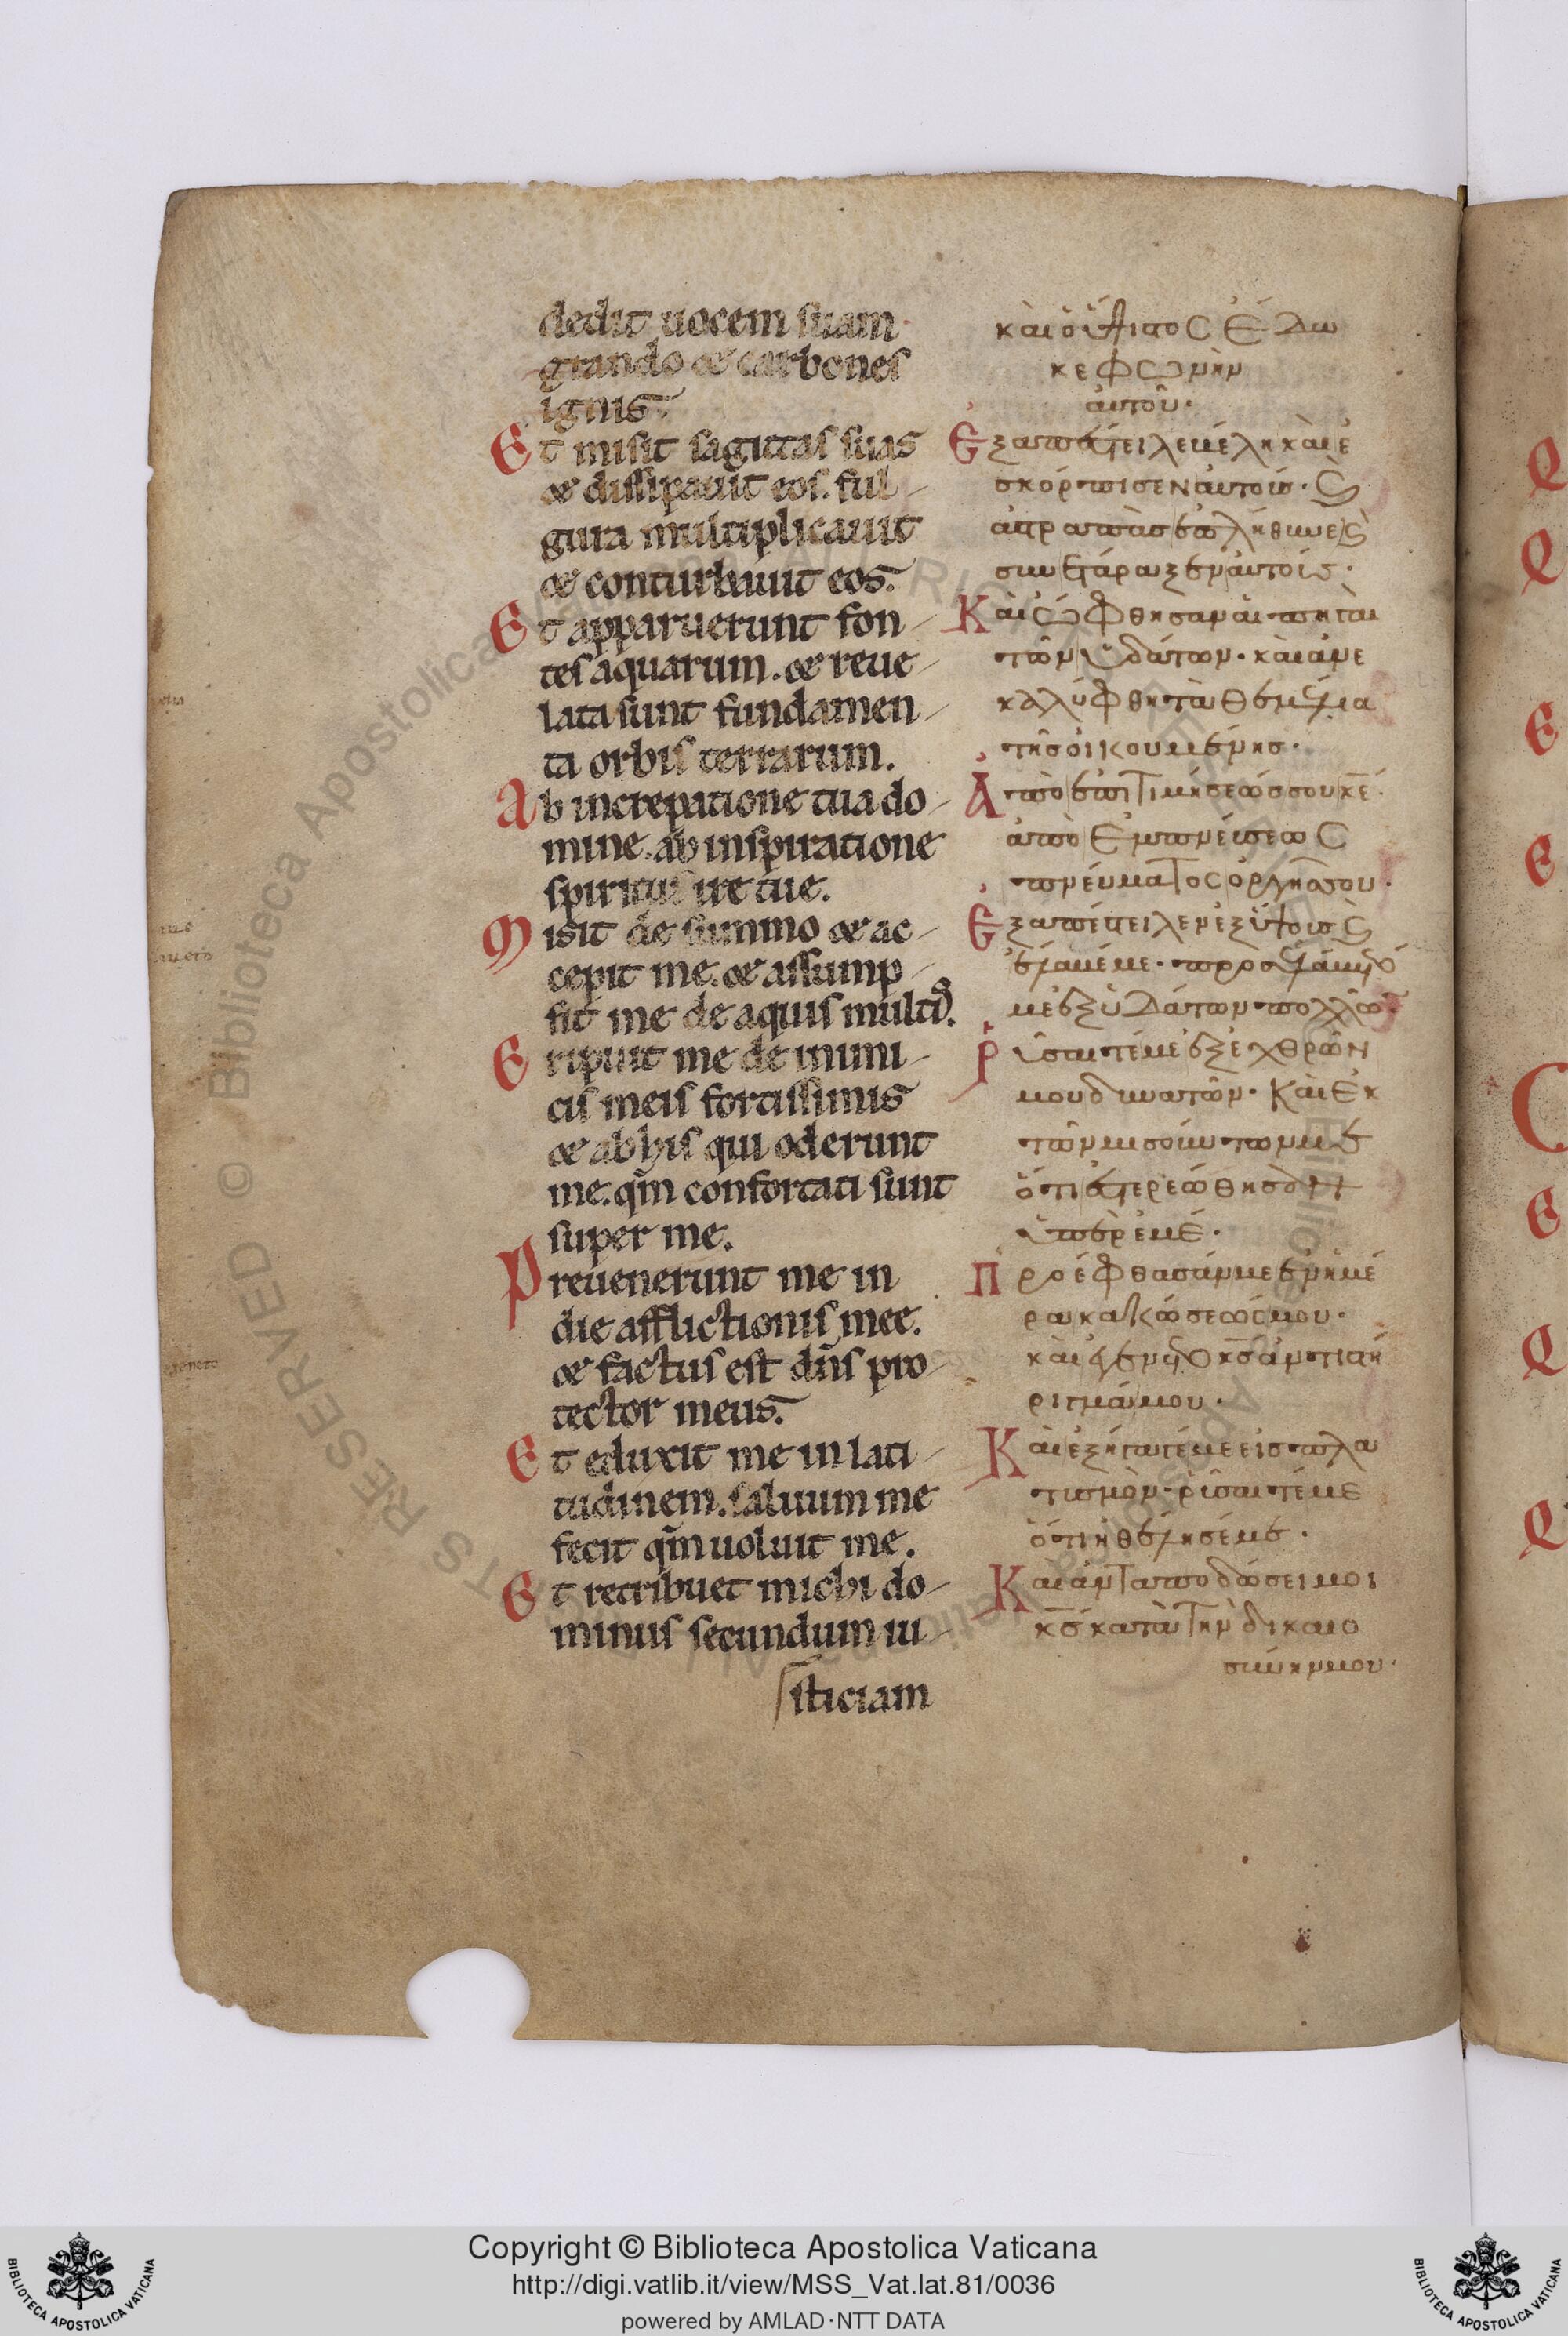 dedit uocem suam
grando & carbones
ignis.
Et misit sagittas suas
& dissipauit eos. ful-
gura multiplicauit
& conturbauit eos.
Et apparuerunt fon-
tes aquarum. & reue-
lata sunt fundamen-
ta orbis terrarum.
Ab increpatione tua do-
mine. ab inspiratione
spiritus ire tue.
Misit de summo & ac-
cepit me. & assump-
sit me de aquis multis.
Eripuit me de inimi-
cis meis fortissimis
& ab his qui oderunt
me. qm̄ confortati sunt
super me.
Preuenerunt me in
die afflictionis mee.
& factus est dn̄s pro-
tector meus.
Et eduxit me in lati-
tudinem. saluum me
fecit qm̄ uoluit me.
Et retribuet michi do-
minus secundum iu-
sticiam
καὶ ὁ ὕψιστος ἔδω
κε φωνὴν
ἀυτοῦ.
Ἐξαπέστειλε βέλη καὶ ἐ
σκόρπισεν ἀυτούς. καὶ
ἀστραπὰς ἐπλήθυνε καὶ
συνετάραξεν ἀυτούς.
Καὶ ὤφθησαν ἁι πηγαὶ
τῶν ὑδάτων. καὶ ἀνε
καλύφθη τὰ θεμέλια
τῆς ὀικουμένης.
Ἀπὸ ἐπιτιμήσεώς σου κ̄ε.
ἀπὸ ἐμπνεύσεως
πνεύματος ὀργῆς σου.
Ἐξαπέστειλεν ἐξ ὕψους καὶ
ἔλαβέ με. προσελάβετό
με ἐξ ὑδάτων πολλῶν.
Ῥύσεταί με ἐξ ἐχθρῶν
μου δυνατῶν. Καὶ ἐκ
τῶν μισούντων με
ὅτι ἐστερεώθησαν
ὑπὲρ ἐμέ.
Προέφθασάν με ἐν ἡμέ
ρα κακώσεώς μου.
καὶ ἐγένετο κ̄ς ἀντιστή
ριγμά μου.
Καὶ ἐξήγαγέ με εἰς πλα
τυσμὸν. ῥύσεταί με
ὅτι ἠθέλησέ με.
Καὶ ἀνταποδώσει μοι
κ̄ς κατὰ τὴν δικαιο
σύνην μου.
RESERVED © Biblioteca Apostolica
Copyright © Biblioteca Apostolica Vaticana
http://digi.vatlib.it/view/MSS_Vat.lat.81/0036
powered by AMLAD·NTT DATA
BIBLIOTECA APOSTOLICA VATICANA
BIBLIOTECA APOSTOLICA VATICANA